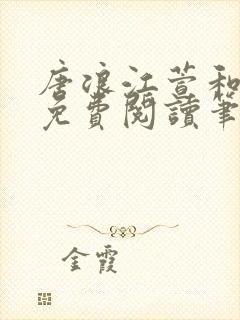 唐浪江萱和
免費閱讀筆
金霞